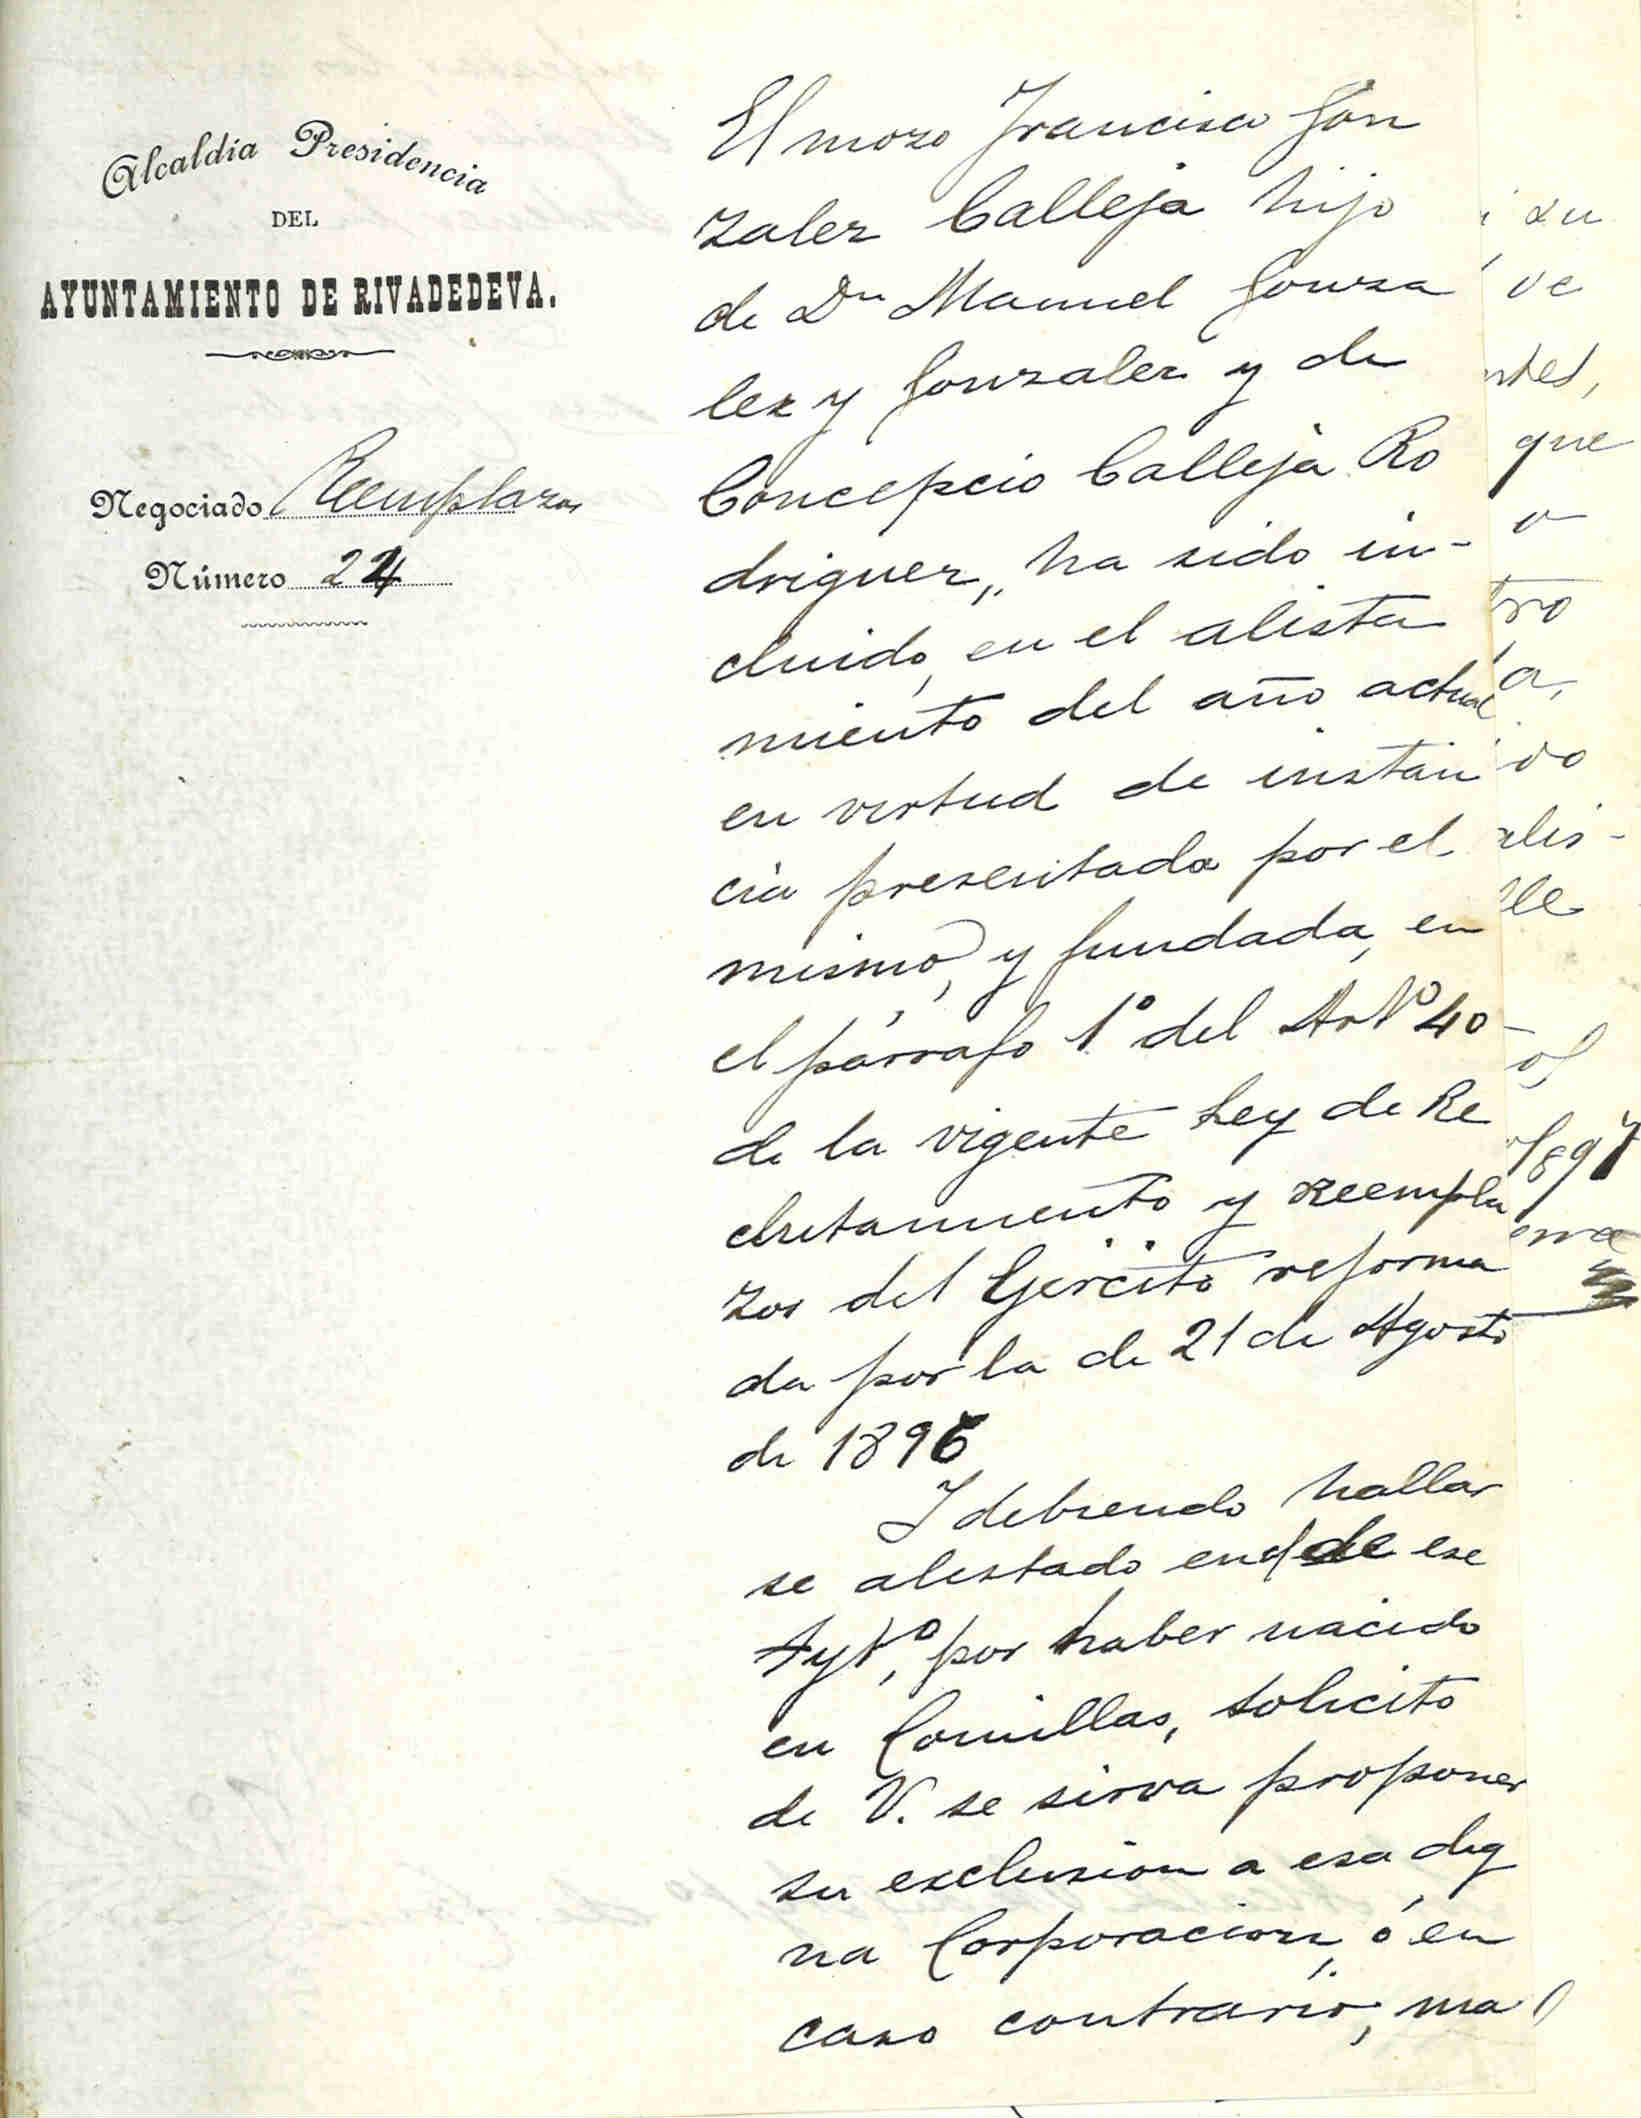 Alcaldía Presidencia
DEL
AYUNTAMIENTO DE RIVADEDEVA.
Negociado Reemplazos
Número 24
El mozo Francisco Gon
zalez Calleja hijo
de Dn Manuel Gonza
lez y Gonzalez y de
Concepcio Calleja Ro
driguez, ha sido in-
cluido, en el alista
miento del año actual
en virtud de instan
cia presentada por el
mismo, y fundada, en
el párrafo 1º del Artº 40
de la vigente Ley de Re
clutamiento y reempla
zos del Ejército reforma
da por la de 21 de Agosto
de 1896
Y debiendo hallar
se alistado en el de ese
Aytº, por haber nacido
en Comillas, solicito
de V. se sirva proponer
su exclusion a esa dig
na Corporacion, ó en
caso contrario, ma
su
ve
ntes,
que
o
tro
a,
do
alis-
lle
os
1897